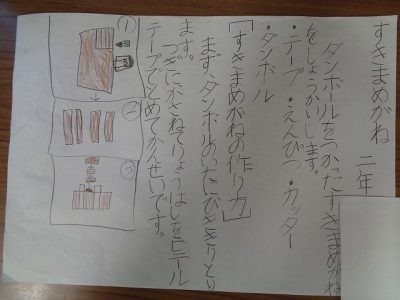 すきまめがね 二年
ダンボールをつかったすきまめがね
をしょうかいします。
・テープ ・えんぴつ ・カッター
・ダンボル
「すきまめがねの作り方」
まず、ダンボールのいたにひききりとり
ます。
つぎにかさねりょうはしをビニール
テープでとめてかんせいです。
①
②
③